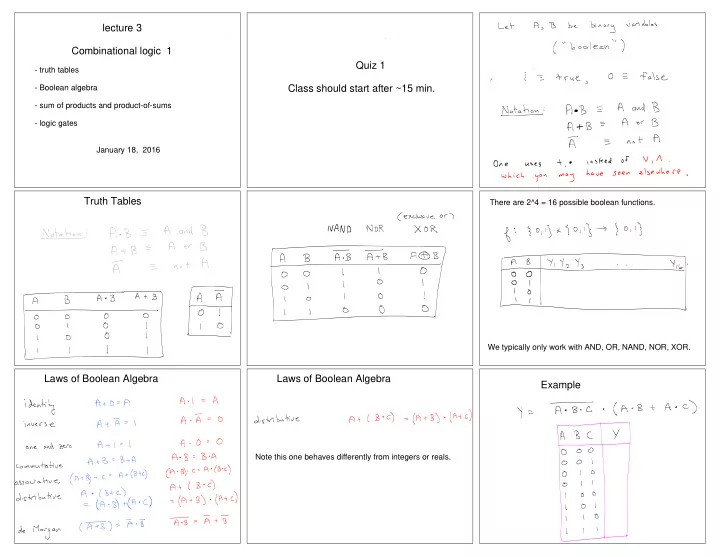 lecture 3
Combinational logic 1
- truth tables
- Boolean algebra
- sum of products and product-of-sums
- logic gates
January 18, 2016
Quiz 1
Class should start after ~15 min.
Let A, B be binary variables
("boolean")
1 ≡ true, 0 ≡ false
Notation: A•B ≡ A and B
A+B ≡ A or B
A̅ ≡ not A
One uses +,• instead of ∨,∧.
which you may have seen elsewhere.
Truth Tables
Notation: A•B ≡ A and B
A+B ≡ A or B
A̅ ≡ not A
A B A•B A+B
0 0 0 0
0 1 0 1
1 0 0 1
1 1 1 1
A A̅
0 1
1 0
(exclusive or)
NAND NOR XOR
A B \overline{A•B} \overline{A+B} A⊕B
0 0 1 1 0
0 1 1 0 1
1 0 1 0 1
1 1 0 0 0
There are 2^4 = 16 possible boolean functions.
f: {0,1} x {0,1} → {0,1}
A B Y₁ Y₂ Y₃ . . . Y₁₆
0 0
0 1
1 0
1 1
We typically only work with AND, OR, NAND, NOR, XOR.
Laws of Boolean Algebra
identity A+0=A A•1 = A
inverse A+A̅=1 A•A̅ = 0
one and zero A+1=1 A•0 = 0
commutative A+B=B+A A•B = B•A
associative (A+B)+C = A+(B+C) (A•B)•C = A•(B•C)
distributive A•(B+C) = (A•B)+(A•C) A+(B•C) = (A+B)•(A+C)
de Morgan \overline{(A+B)} = A̅•B̅ \overline{A•B} = A̅+B̅
Laws of Boolean Algebra
distributive A+(B•C) = (A+B)•(A+C)
Note this one behaves differently from integers or reals.
Example
Y = \overline{A•B•C} • (A•B + A•C)
A B C Y
0 0 0
0 0 1
0 1 0
0 1 1
1 0 0
1 0 1
1 1 0
1 1 1